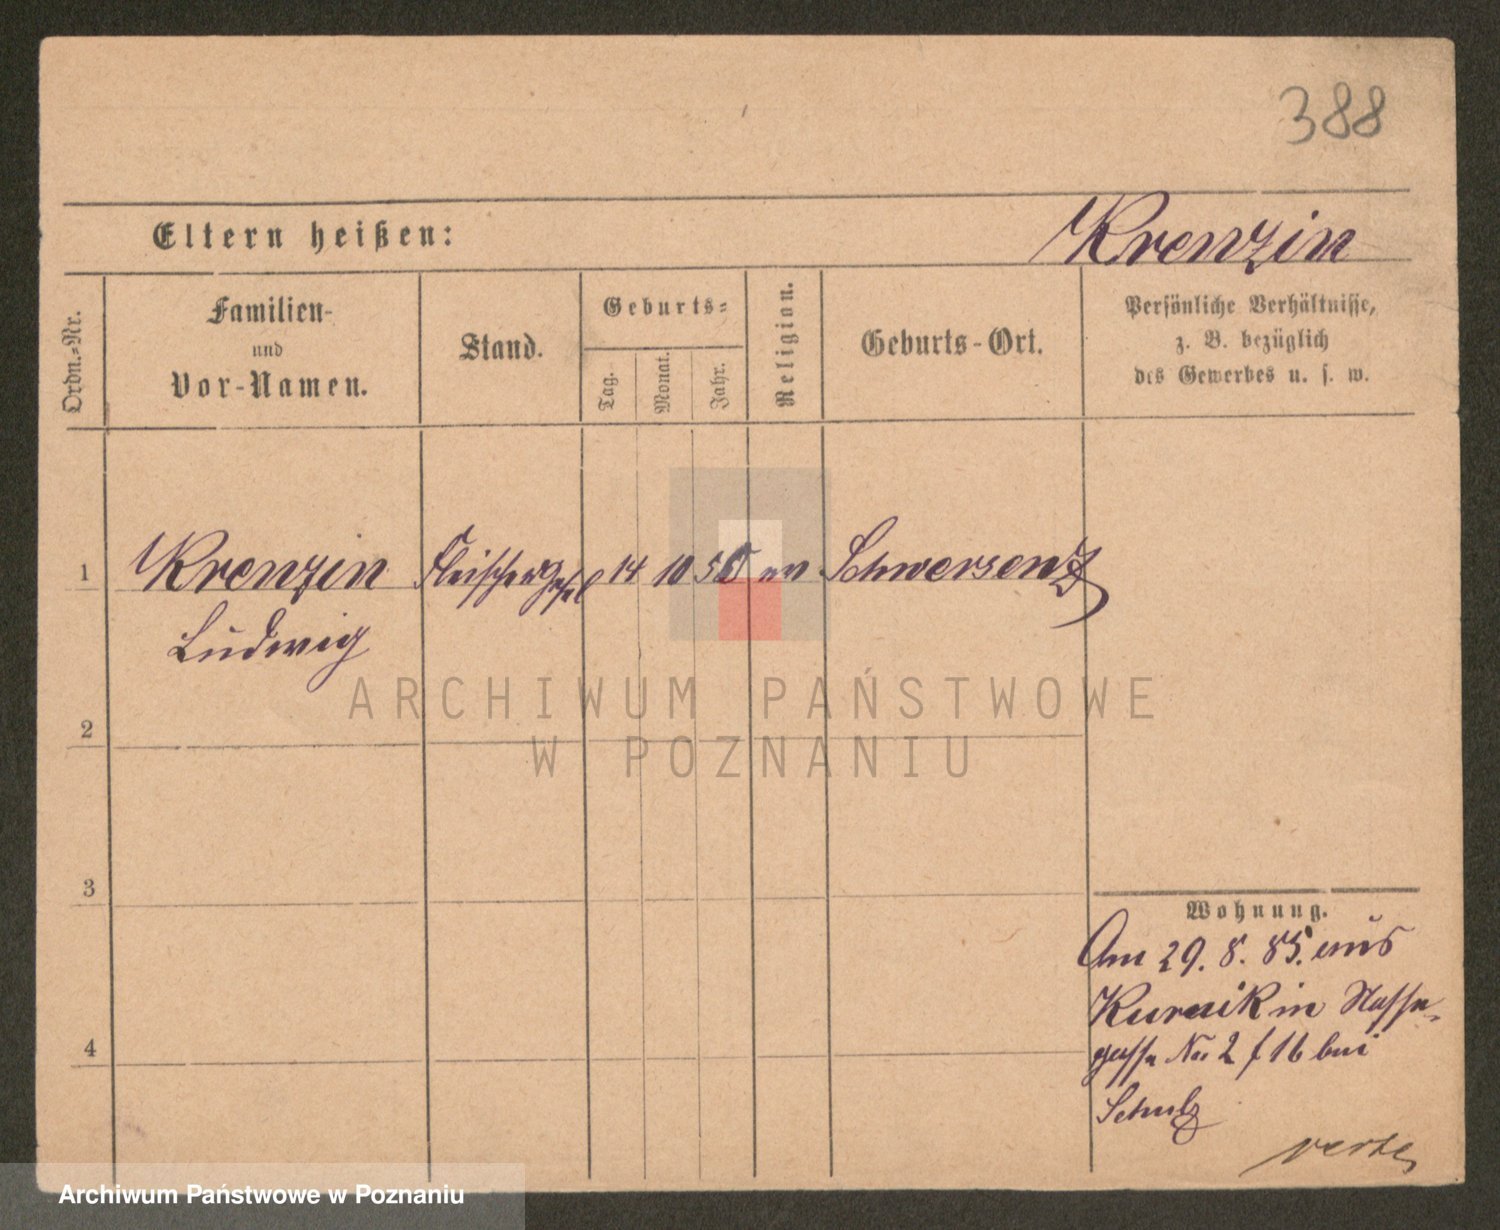 388
Eltern heißen:
Krenzin
Ordn.-Nr.
Familien-
und
Vor-Namen.
Stand.
Geburts-
Tag.
Monat.
Jahr.
Religion.
Geburts-Ort.
Persönliche Verhältnisse,
z. B. bezüglich
des Gewerbes u. s. w.
1
Krenzin
Ludwig
Fleischergesel
14
10
ev
Schwersenz
2
3
4
Wohnung.
Am 29. 8. 85. aus
Kurnik in Nasse-
gasse No 2 / 16 bei
Schulz
ARCHIWUM PAŃSTWOWE
W POZNANIU
Archiwum Państwowe w Poznaniu